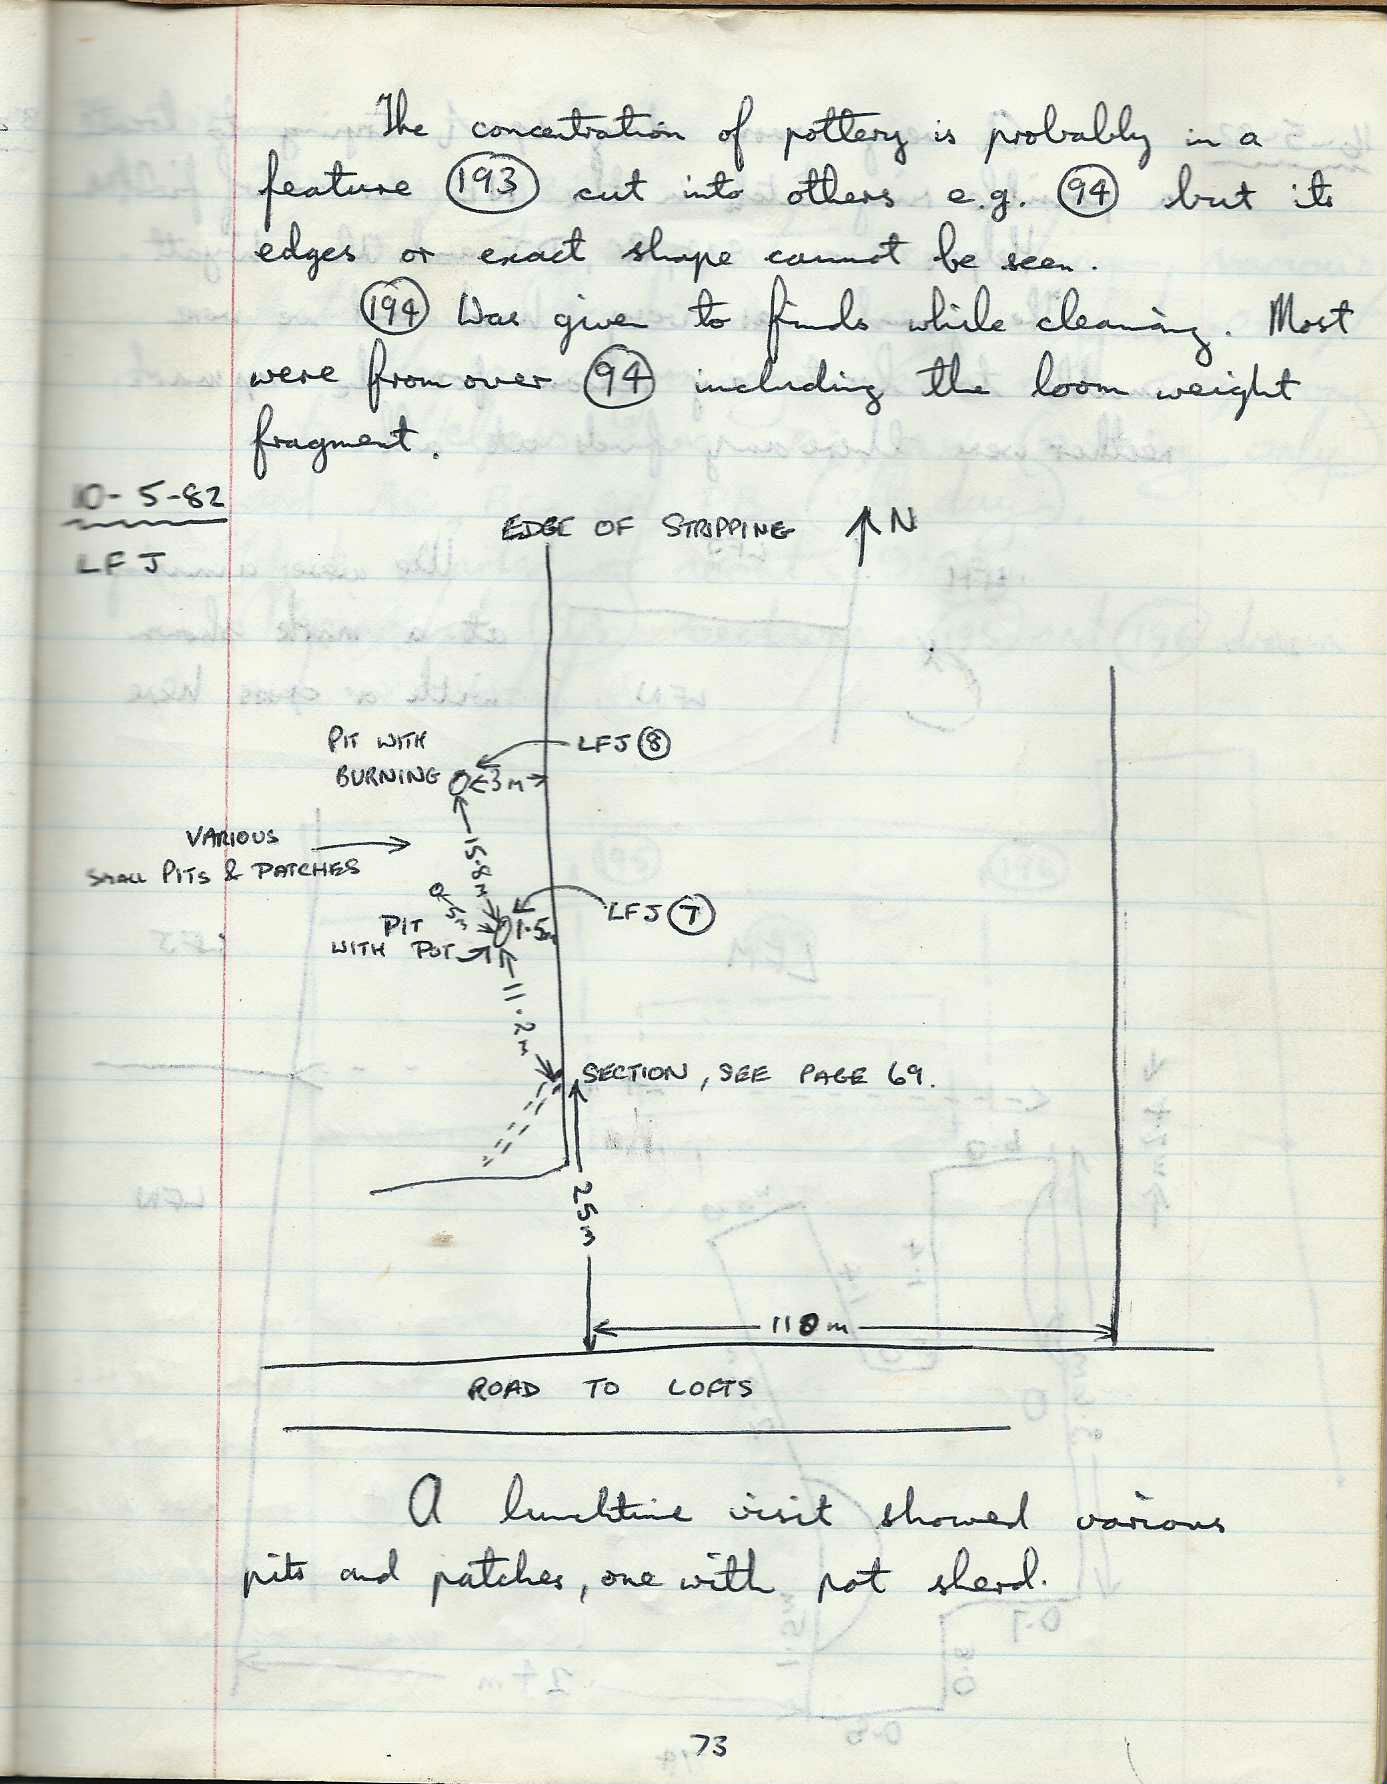 The concentration of pottery is probably in a
feature (193) cut into others e.g. (94) but its
edges or exact shape cannot be seen.
(194) Was given to finds while cleaning. Most
were from over (94) including the loom weight
fragment.
10-5-82
LFJ
EDGE OF STRIPPING ↑ N
PIT WITH
BURNING
LFJ (8)
3m
VARIOUS
SMALL PITS & PATCHES
15.8m
5m
PIT
WITH POT
1.5m
LFJ (7)
11.2m
SECTION, SEE PAGE 69.
25m
110m
ROAD TO LOFTS
A lunchtime visit showed various
pits and patches, one with pot sherd.
73